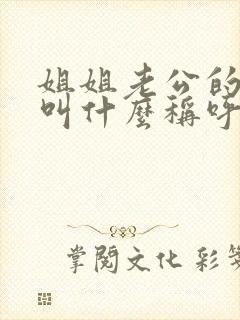 姐姐老公的
叫什麼稱呼
掌閱文化 彩